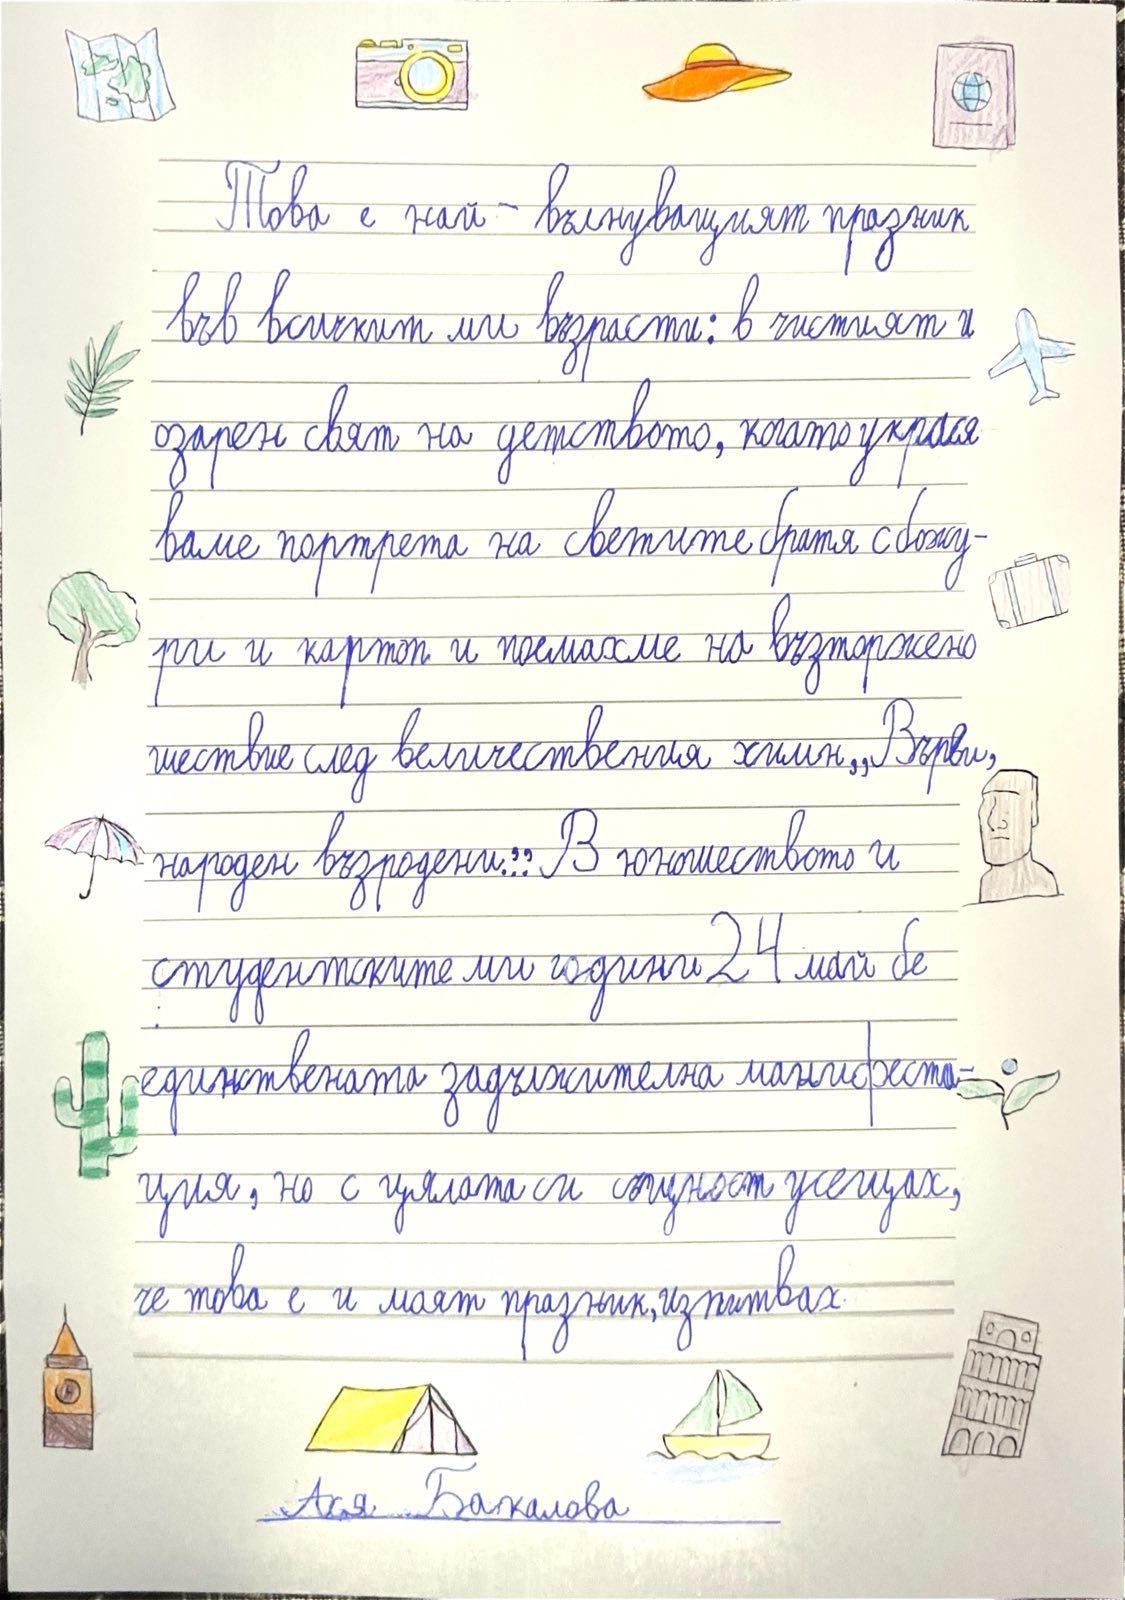 Това е най-вълнуващият празник
във всичкит ми възрасти: в чистият и
озарен свят на детството, когато украся
ваме портрета на светите братя с божу-
ри и картоп и поемахме на възторжено
шествие след величествения химн,,Върви,
народен възродени:" В юношеството и
студентските ми години 24 май бе
единствената задължителна манифеста-
ция, но с цялата си същност усещах,
че това е и моят празник, изпитвах
Ася Бакалова